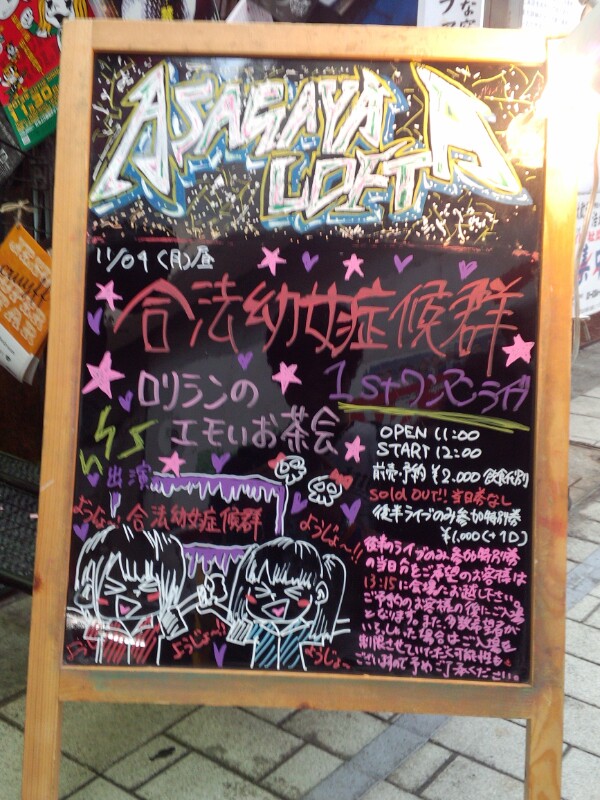 ASAGAYA
LOFT A
11/09 (月)昼
合法幼女症候群
1stワンマンライブ
ロリランの
エモいお茶会
OPEN 11:00
START 12:00
前売・予約 ¥2,000(飲食代別)
SOLD OUT!! 当日券なし
後半ライブのみ参加特別券
¥1,000(+1D)
出演
合法幼女症候群
ようじょ〜!!
ようじょ〜!!
ようじょ〜
後半のライブのみ参加特別券
の当日分をご希望のお客様は
13:15に会場にお越し下さい。
ご予約のお客様の後にご入場
となります。また、多数希望者が
いらっしゃった場合はご入場を
制限させていただく可能性も
ございますので予めご了承ください。